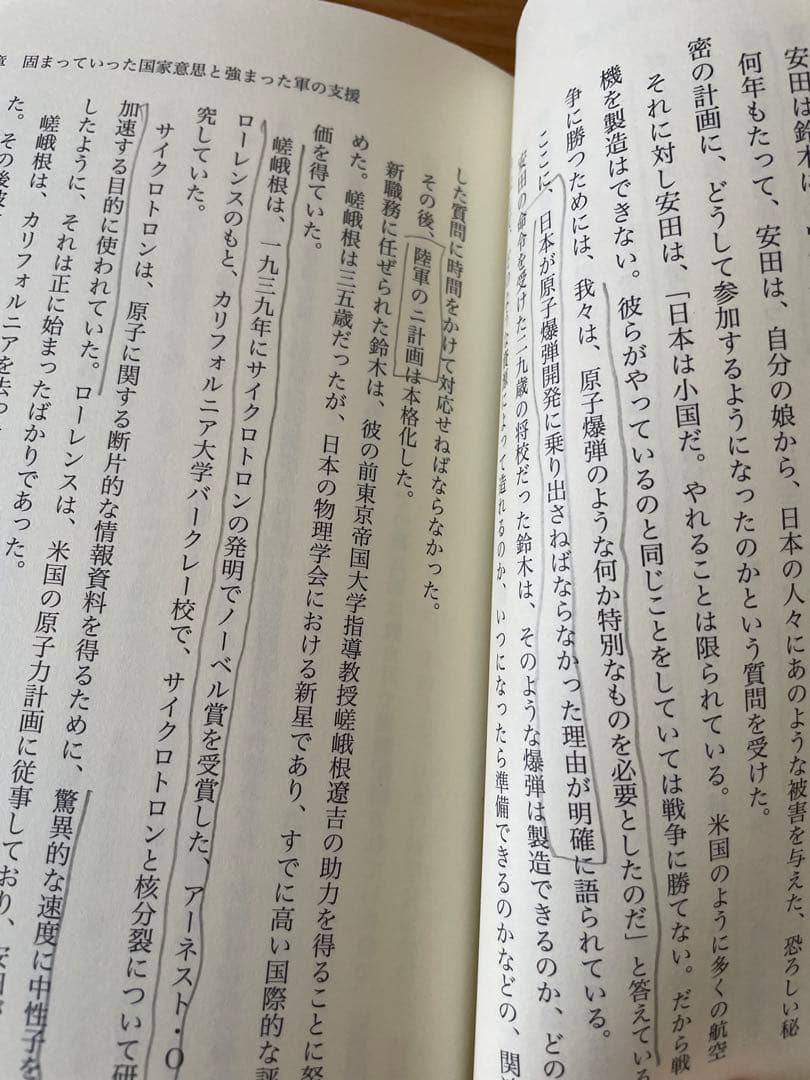 安田は鈴木に、
何年もたって、安田は、自分の娘から、日本の人々にあのような被害を与えた、恐ろしい秘
密の計画に、どうして参加するようになったのかという質問を受けた。
それに対し安田は、「日本は小国だ。やれることは限られている。米国のように多くの航空
機を製造はできない。彼らがやっているのと同じことをしていては戦争に勝てない。だから戦
争に勝つためには、我々は、原子爆弾のような何か特別なものを必要としたのだ」と答えている
ここに、日本が原子爆弾開発に乗り出さねばならなかった理由が明確に語られている。
安田の命令を受けた二九歳の将校だった鈴木は、そのような爆弾は製造できるのか、どの
ような資源によって造れるのか、いつになったら準備できるのかなどの、関
章 固まっていった国家意思と強まった軍の支援
した質問に時間をかけて対応せねばならなかった。
その後、陸軍のニ計画は本格化した。
新職務に任ぜられた鈴木は、彼の前東京帝国大学指導教授嵯峨根遼吉の助力を得ることに努
めた。嵯峨根は三五歳だったが、日本の物理学会における新星であり、すでに高い国際的な評
価を得ていた。
嵯峨根は、一九三九年にサイクロトロンの発明でノーベル賞を受賞した、アーネスト・O
ローレンスのもと、カリフォルニア大学バークレー校で、サイクロトロンと核分裂について研
究していた。
サイクロトロンは、原子に関する断片的な情報資料を得るために、驚異的な速度に中性子を
加速する目的に使われていた。ローレンスは、米国の原子力計画に従事しており、安田が
したように、それは正に始まったばかりであった。
嵯峨根は、カリフォルニアを去っ
た。その後